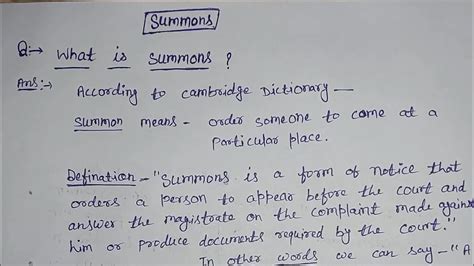 Summons
Q:→ What is Summons ?
Ans:→
According to cambridge Dictionary —
Summon means - order someone to come at a
particular place.
Defination - "Summons is a form of notice that
orders a person to appear before the court and
answer the magistrate on the complaint made against
him or produce documents required by the court."
In other words we can say - "A